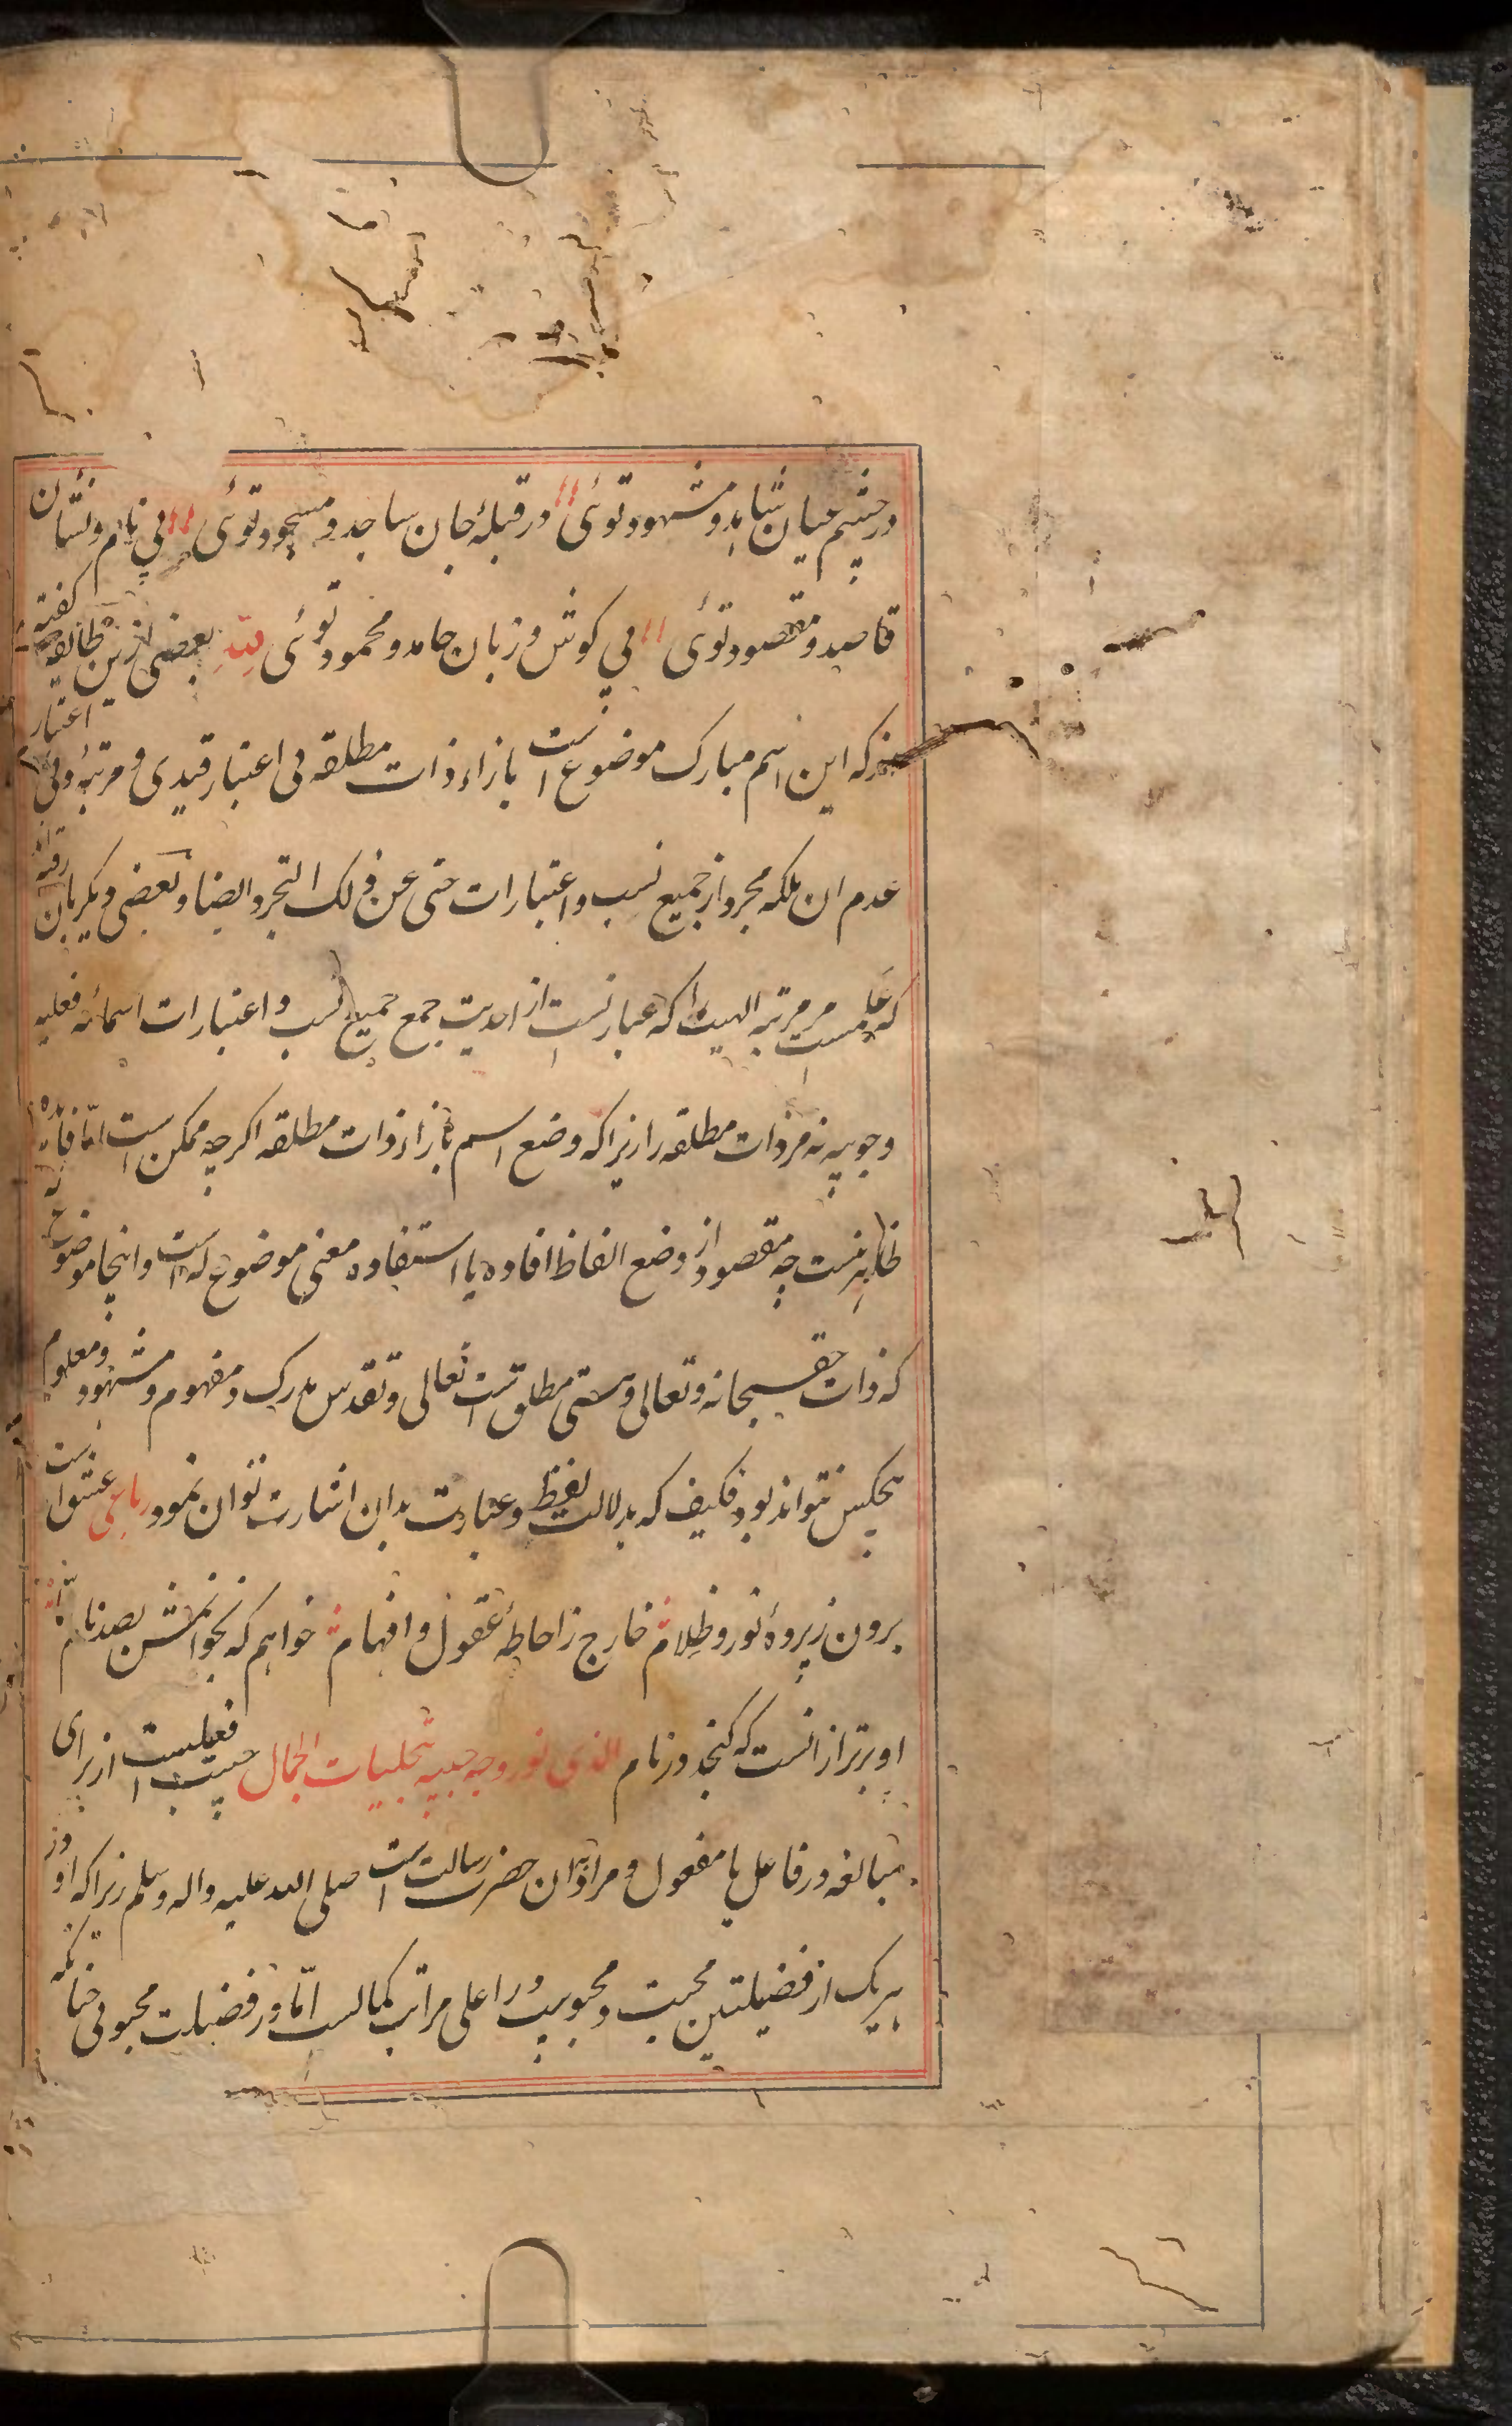 در چشم عیان شاهد و مشهود توئی در قبلهٔ جان ساجد و مسجود توئی بی نام و نشان
قاصد و مقصود توئی بی کوش و زبان حامد و محمود توئی لله بعضی ازین طایفه کفته
اند که این اسم مبارک موضوع است بازاء ذات مطلقه بی اعتبار قیدی و مرتبهٔ و بی اعتبار
عدم ان بلکه مجرد از جمیع نسب و اعتبارات حتی عن ذلک التجرد ایضا و بعضی دیکر بان رفته
که علمست مر مرتبه الهیت را که عبارتست از احدیت جمع جمیع نسب و اعتبارات اسمائه فعلیه
وجوبیه نه مر ذات مطلقه را زیرا که وضع اسم بازاء ذات مطلقه اکرچه ممکن است امّا فائده
ظاهر نیست چه مقصود از وضع الفاظ افاده یا استفاده معنی موضوع له است و اینجا موضوع له
که ذات حق سبحانه و تعالی و هستی مطلق است تعالی و تقدس مدرک و مفهوم و مشهود و معلوم
هیچکس نتواند بود فکیف که بدلالت لفظ و عبارت بدان اشارت توان نمود رباعی عشق است
برون ز پردهٔ نور و ظلام خارج ز احاطهٔ عقول و افهام خواهم که بخوانمش بصد نام امّا
او برتر از انست که کنجد در نام الذی نور وجه حبیبه بتجلیات الجمال حبیب فعیلست از برای
مبالغه در فاعل یا مفعول و مراد بان حضرت رسالت است صلی الله علیه واله وسلم زیرا که او در
هر یک از فضیلتین محبیت و محبوبیت در اعلی مراتب کمالست امّا در فضیلت محبوبی چنانکه